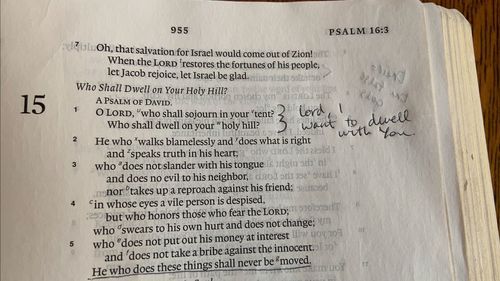 955
PSALM 16:3
7 Oh, that salvation for Israel would come out of Zion!
When the LORD restores the fortunes of his people,
let Jacob rejoice, let Israel be glad.
Who Shall Dwell on Your Holy Hill?
15
A PSALM OF DAVID.
1 O LORD, who shall sojourn in your tent?
Who shall dwell on your holy hill?
Lord, I
want to dwell
with You.
2 He who walks blamelessly and does what is right
and speaks truth in his heart;
3 who does not slander with his tongue
and does no evil to his neighbor,
nor takes up a reproach against his friend;
4 in whose eyes a vile person is despised,
but who honors those who fear the LORD;
who swears to his own hurt and does not change;
5 who does not put out his money at interest
and does not take a bribe against the innocent.
He who does these things shall never be moved.